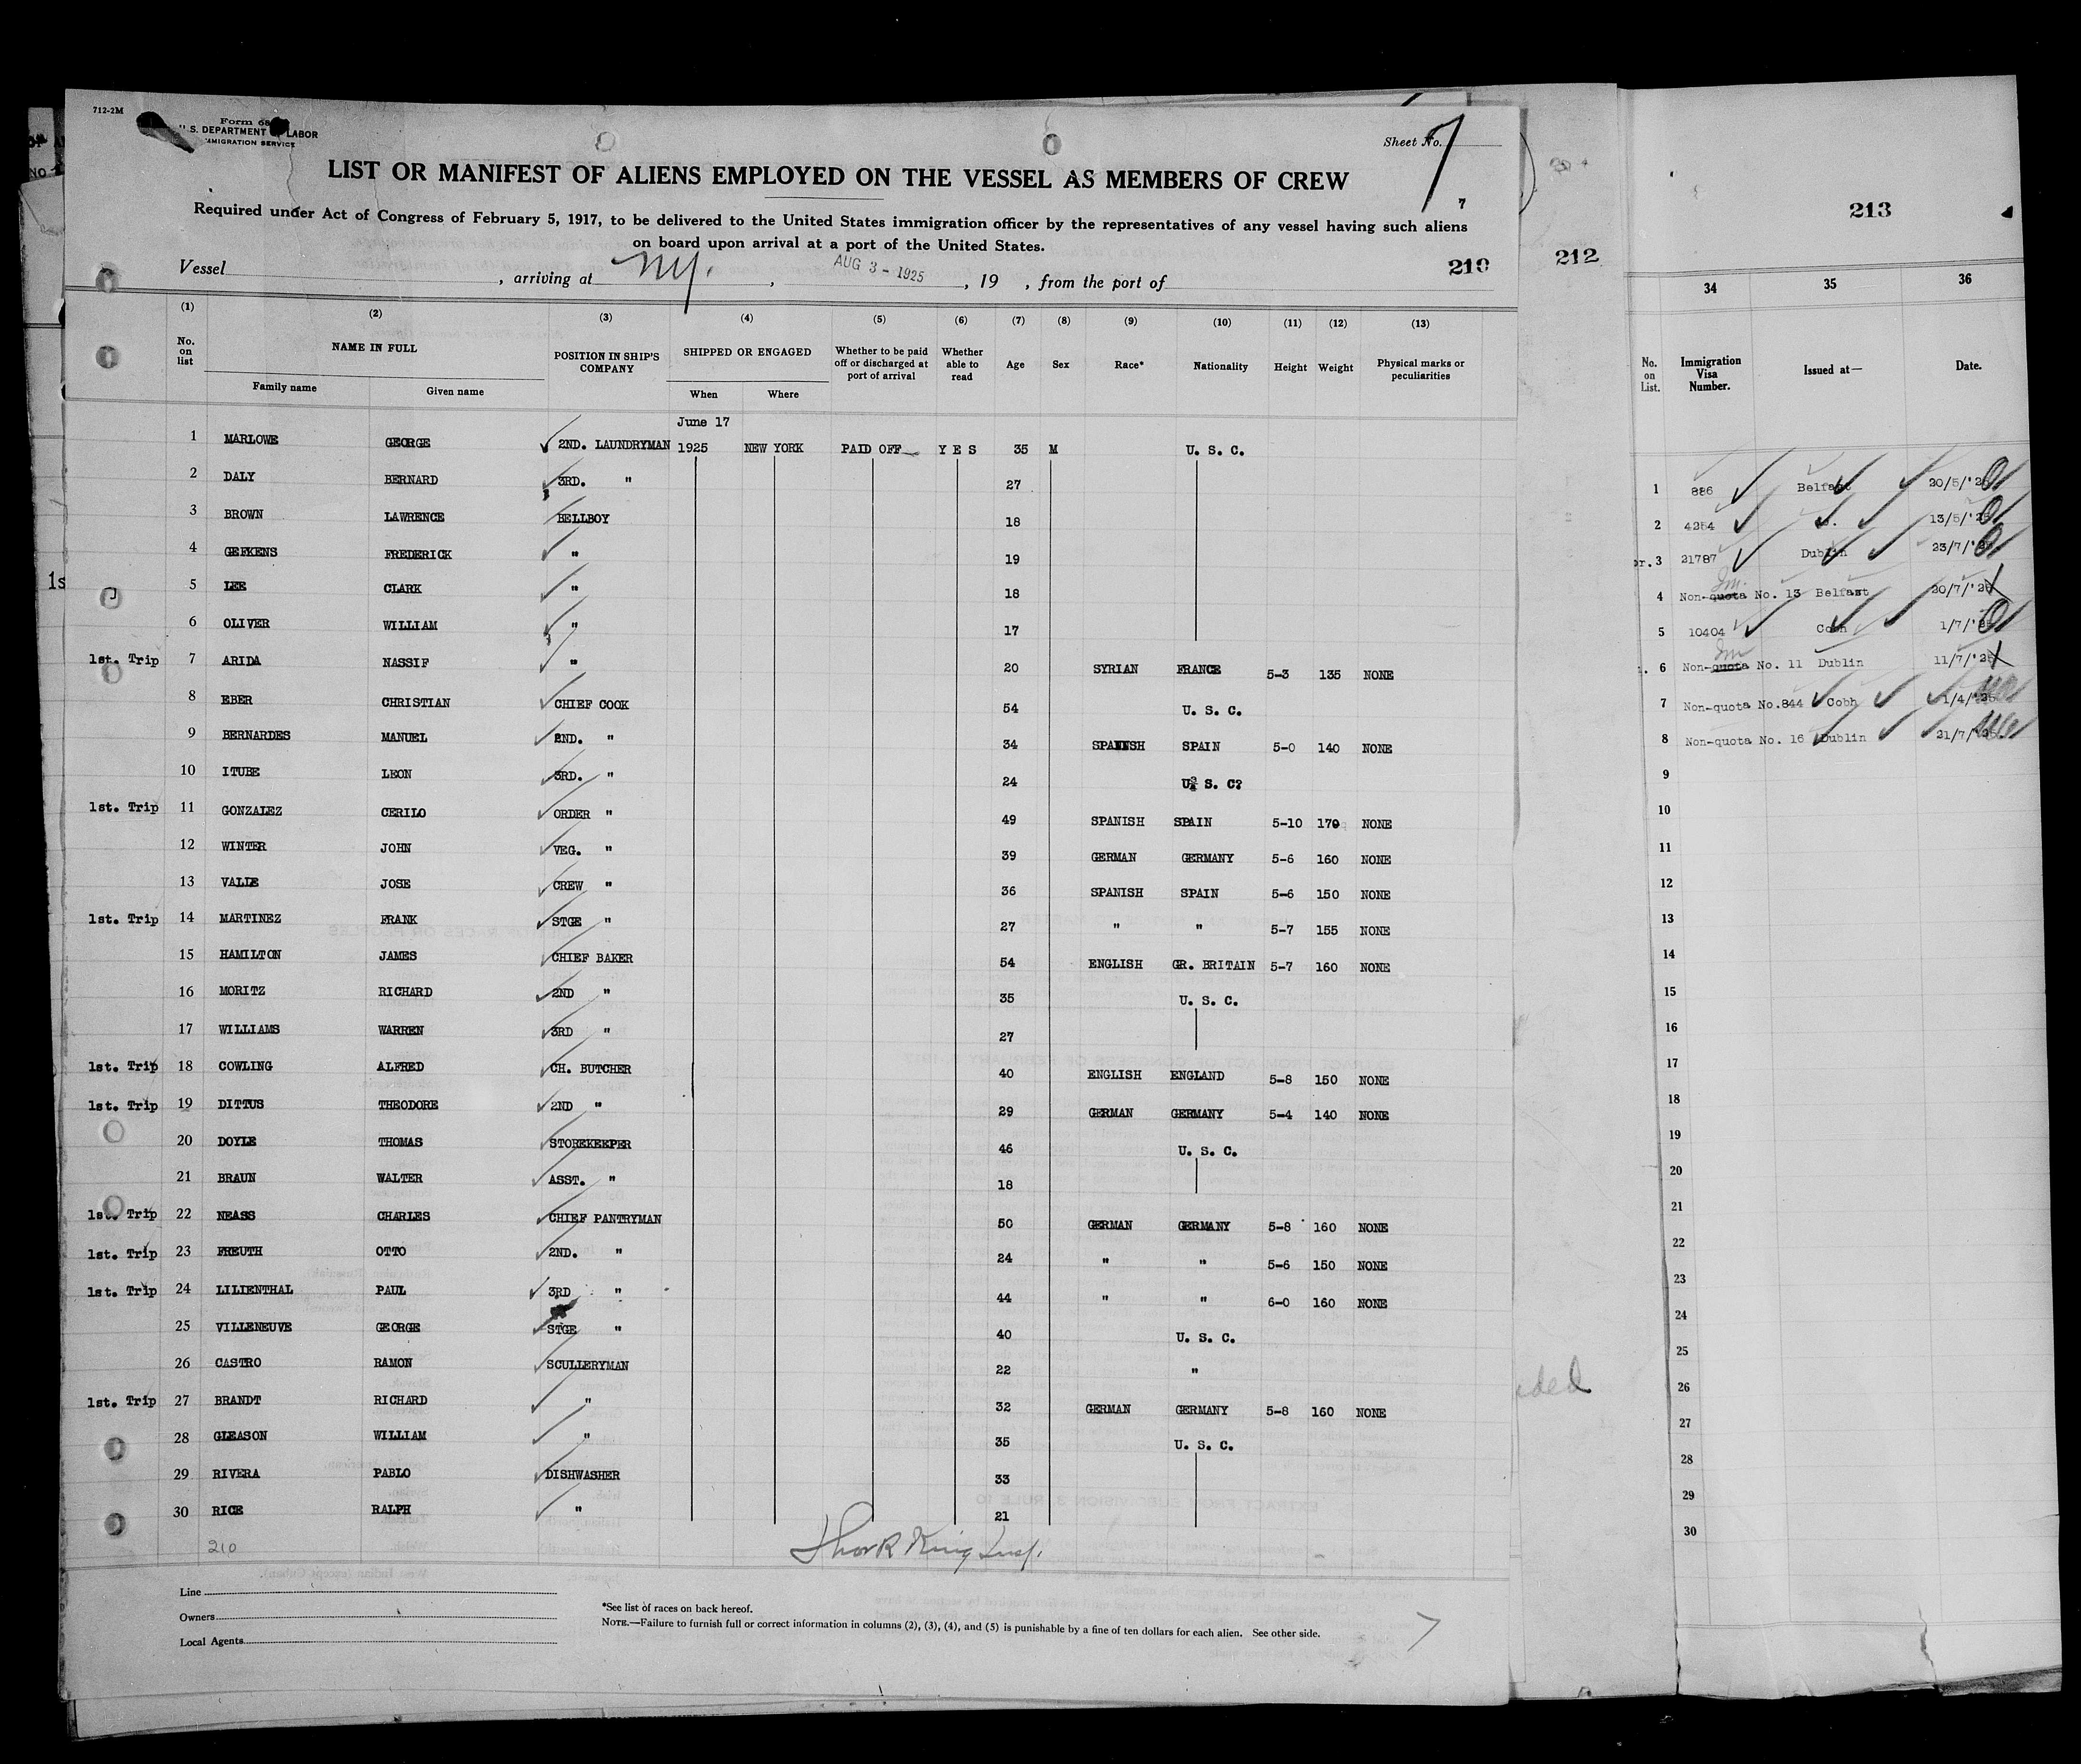 712-2M
Form 68
U. S. DEPARTMENT LABOR
IMMIGRATION SERVICE
Sheet No. 7
7
LIST OR MANIFEST OF ALIENS EMPLOYED ON THE VESSEL AS MEMBERS OF CREW
Required under Act of Congress of February 5, 1917, to be delivered to the United States immigration officer by the representatives of any vessel having such aliens
on board upon arrival at a port of the United States.
Vessel , arriving at N.Y. , AUG 3 - 1925 , 19 , from the port of 210
(1) (2) (3) (4) (5) (6) (7) (8) (9) (10) (11) (12) (13)
No. on list NAME IN FULL POSITION IN SHIP'S COMPANY SHIPPED OR ENGAGED Whether to be paid off or discharged at port of arrival Whether able to read Age Sex Race* Nationality Height Weight Physical marks or peculiarities
Family name Given name When Where
June 17
1 MARLOWE GEORGE 2ND. LAUNDRYMAN 1925 NEW YORK PAID OFF YES 35 M U. S. C.
2 DALY BERNARD 3RD. " 27
3 BROWN LAWRENCE BELLBOY 18
4 GEFKENS FREDERICK " 19
5 LEE CLARK " 18
6 OLIVER WILLIAM " 17
1st. Trip 7 ARIDA NASSIF " 20 SYRIAN FRANCE 5-3 135 NONE
8 EBER CHRISTIAN CHIEF COOK 54 U. S. C.
9 BERNARDES MANUEL 2ND. " 34 SPANISH SPAIN 5-0 140 NONE
10 ITUBE LEON 3RD. " 24 U. S. C?
1st. Trip 11 GONZALEZ CERILO ORDER " 49 SPANISH SPAIN 5-10 170 NONE
12 WINTER JOHN VEG. " 39 GERMAN GERMANY 5-6 160 NONE
13 VALLE JOSE CREW " 36 SPANISH SPAIN 5-6 150 NONE
1st. Trip 14 MARTINEZ FRANK STGE " 27 " " 5-7 155 NONE
15 HAMILTON JAMES CHIEF BAKER 54 ENGLISH GR. BRITAIN 5-7 160 NONE
16 MORITZ RICHARD 2ND " 35 U. S. C.
17 WILLIAMS WARREN 3RD " 27
1st. Trip 18 COWLING ALFRED CH. BUTCHER 40 ENGLISH ENGLAND 5-8 150 NONE
1st. Trip 19 DITTUS THEODORE 2ND " 29 GERMAN GERMANY 5-4 140 NONE
20 DOYLE THOMAS STOREKEEPER 46 U. S. C.
21 BRAUN WALTER ASST. " 18
1st. Trip 22 NEASS CHARLES CHIEF PANTRYMAN 50 GERMAN GERMANY 5-8 160 NONE
1st. Trip 23 FREUTH OTTO 2ND. " 24 " " 5-6 150 NONE
1st. Trip 24 LILIENTHAL PAUL 3RD " 44 " " 6-0 160 NONE
25 VILLENEUVE GEORGE STGE " 40 U. S. C.
26 CASTRO RAMON SCULLERYMAN 22 "
1st. Trip 27 BRANDT RICHARD " 32 GERMAN GERMANY 5-8 160 NONE
28 GLEASON WILLIAM " 35 U. S. C.
29 RIVERA PABLO DISHWASHER 33
30 RICE RALPH " 21
210
Line
Owners
Local Agents
*See list of races on back hereof.
NOTE.—Failure to furnish full or correct information in columns (2), (3), (4), and (5) is punishable by a fine of ten dollars for each alien. See other side.
1s
212
213
34 35 36
No. on List. Immigration Visa Number. Issued at— Date.
1 886 Belfast 20/5/'25
2 4254 13/5/'25
3 21787 Dublin 23/7/'25
4 Non-quota No. 13 Belfast 20/7/'25
5 10404 Cobh 1/7/'25
6 Non-quota No. 11 Dublin 11/7/'25
7 Non-quota No.844 Cobh 1/4/'25
8 Non-quota No. 16 Dublin 21/7/'25
9
10
11
12
13
14
15
16
17
18
19
20
21
22
23
24
25
26
27
28
29
30